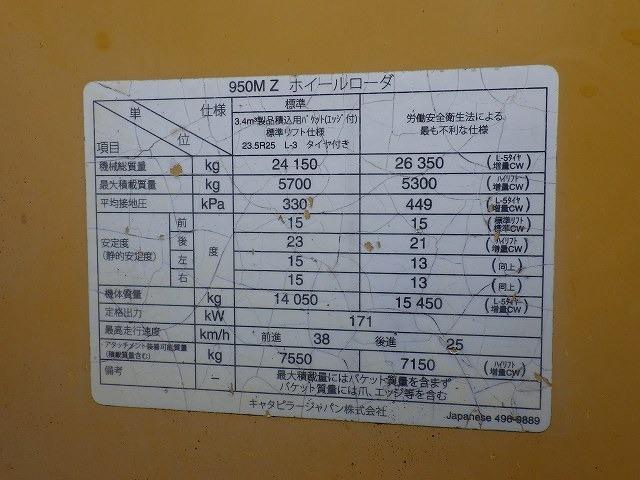 950M Z ホイールローダ
単位 仕様 項目
標準
3.4m³製品積込用バケット(エッジ付)
標準リフト仕様
23.5R25 L-3 タイヤ付き
労働安全衛生法による
最も不利な仕様
機械総質量 kg 24 150 26 350 (L-5タイヤ 増量CW)
最大積載質量 kg 5700 5300 (ハイリフト 増量CW)
平均接地圧 kPa 330 449 (L-5タイヤ 増量CW)
安定度 (静的安定度) 度
前 15 15 (標準リフト 標準CW)
後 23 21 (ハイリフト 増量CW)
左 15 13 (同上)
右 15 13 (同上)
機体質量 kg 14 050 15 450 (L-5タイヤ 増量CW)
定格出力 kW 171
最高走行速度 km/h 前進 38 後進 25
アタッチメント装着可能質量 (積載質量含む) kg 7550 7150 (ハイリフト 増量CW)
備考 – 最大積載量にはバケット質量を含まず
バケット質量には爪、エッジ等を含む
キャタピラージャパン株式会社
Japanese 496-9889